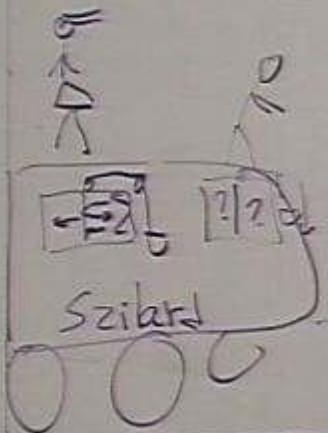 ? ?
Szilard